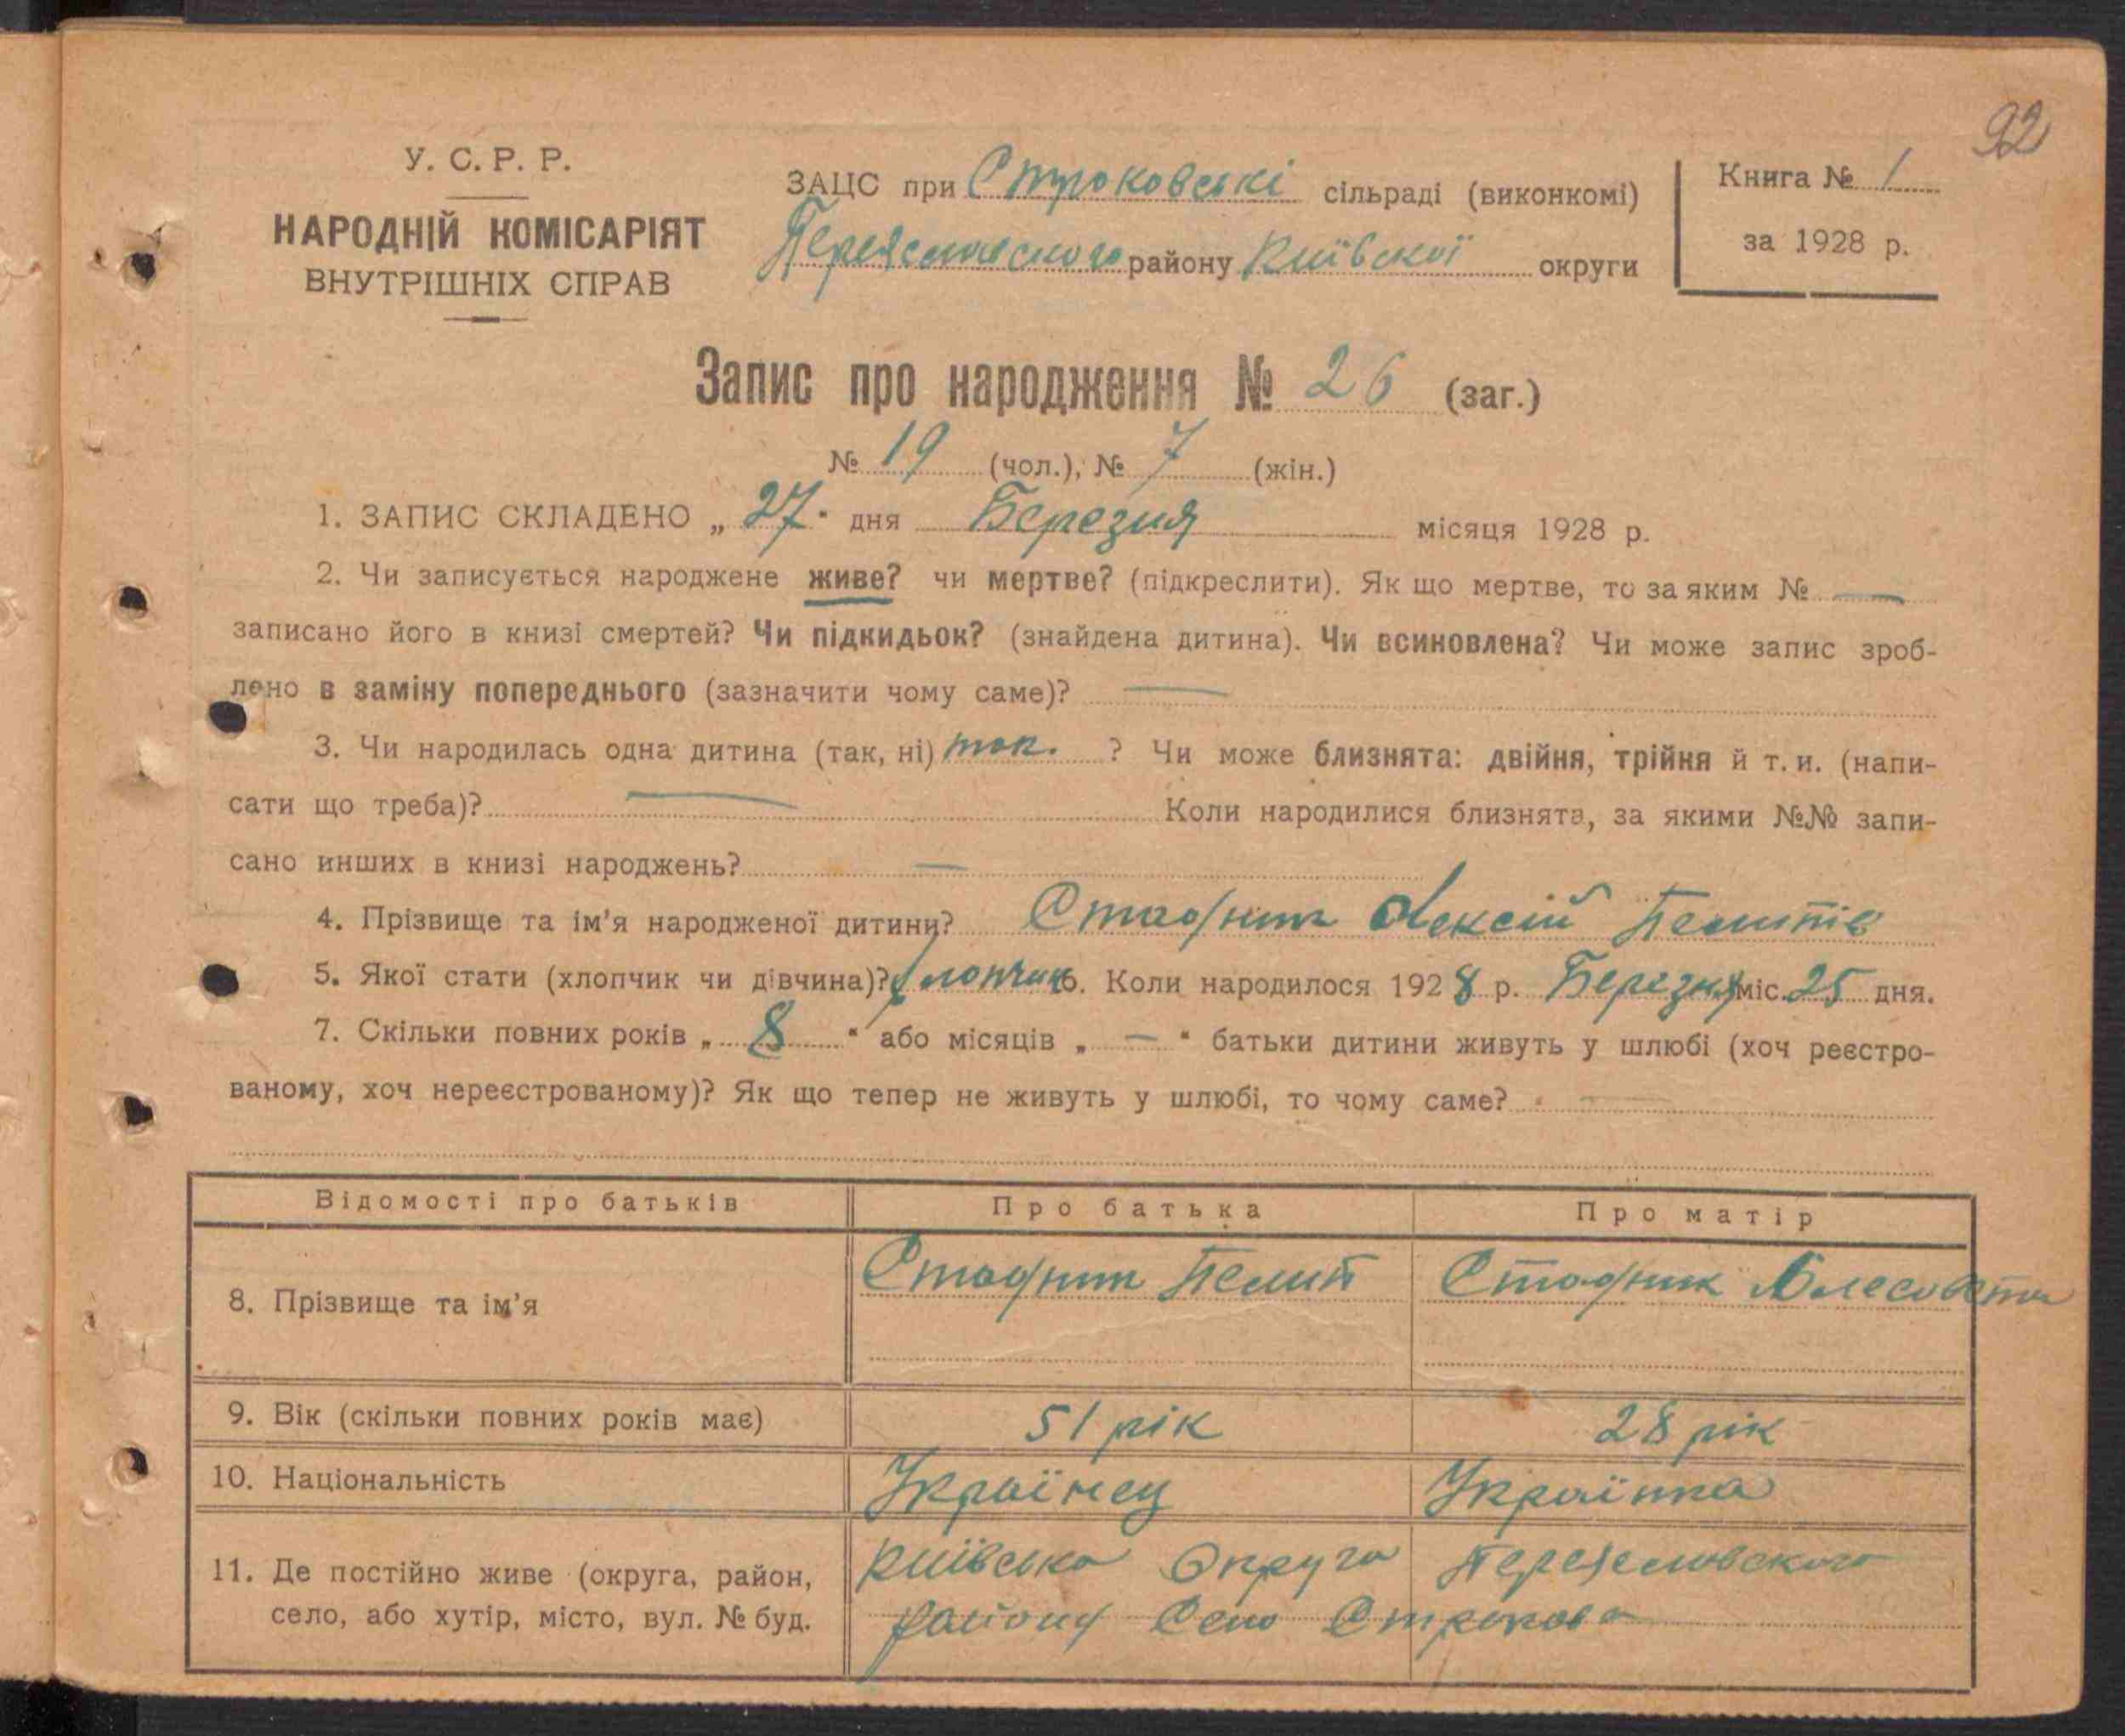 92
У. С. Р. Р.
НАРОДНІЙ КОМІСАРІЯТ
ВНУТРІШНІХ СПРАВ
ЗАЦС при Строковські сільраді (виконкомі)
Переяславского району Київської округи
Книга № 1
за 1928 р.
Запис про народження № 26 (заг.)
№ 19 (чол.), № 7 (жін.)
1. ЗАПИС СКЛАДЕНО „ 27 " дня Березня місяця 1928 р.
2. Чи записується народжене живе? чи мертве? (підкреслити). Як що мертве, то за яким № —
записано його в книзі смертей? Чи підкидьок? (знайдена дитина). Чи всиновлена? Чи може запис зроб-
лено в заміну попереднього (зазначити чому саме)? —
3. Чи народилась одна дитина (так, ні) так. ? Чи може близнята: двійня, трійня й т. и. (напи-
сати що треба)? — Коли народилися близнята, за якими №№ запи-
сано инших в книзі народжень? —
4. Прізвище та ім'я народженої дитини? Стадник Олексій
5. Якої стати (хлопчик чи дівчина)? Хлопчик 6. Коли народилося 1928 р. Березня міс. 25 дня.
7. Скільки повних років „ 8 " або місяців „ — " батьки дитини живуть у шлюбі (хоч реєстро-
ваному, хоч нереєстрованому)? Як що тепер не живуть у шлюбі, то чому саме? —
Відомості про батьків Про батька Про матір
8. Прізвище та ім'я Стадник Стадник
9. Вік (скільки повних років має) 51 рік 28 рік
10. Національність Українец Українка
11. Де постійно живе (округа, район, Київська Округа Переяславского
село, або хутір, місто, вул. № буд. району Село Строкова